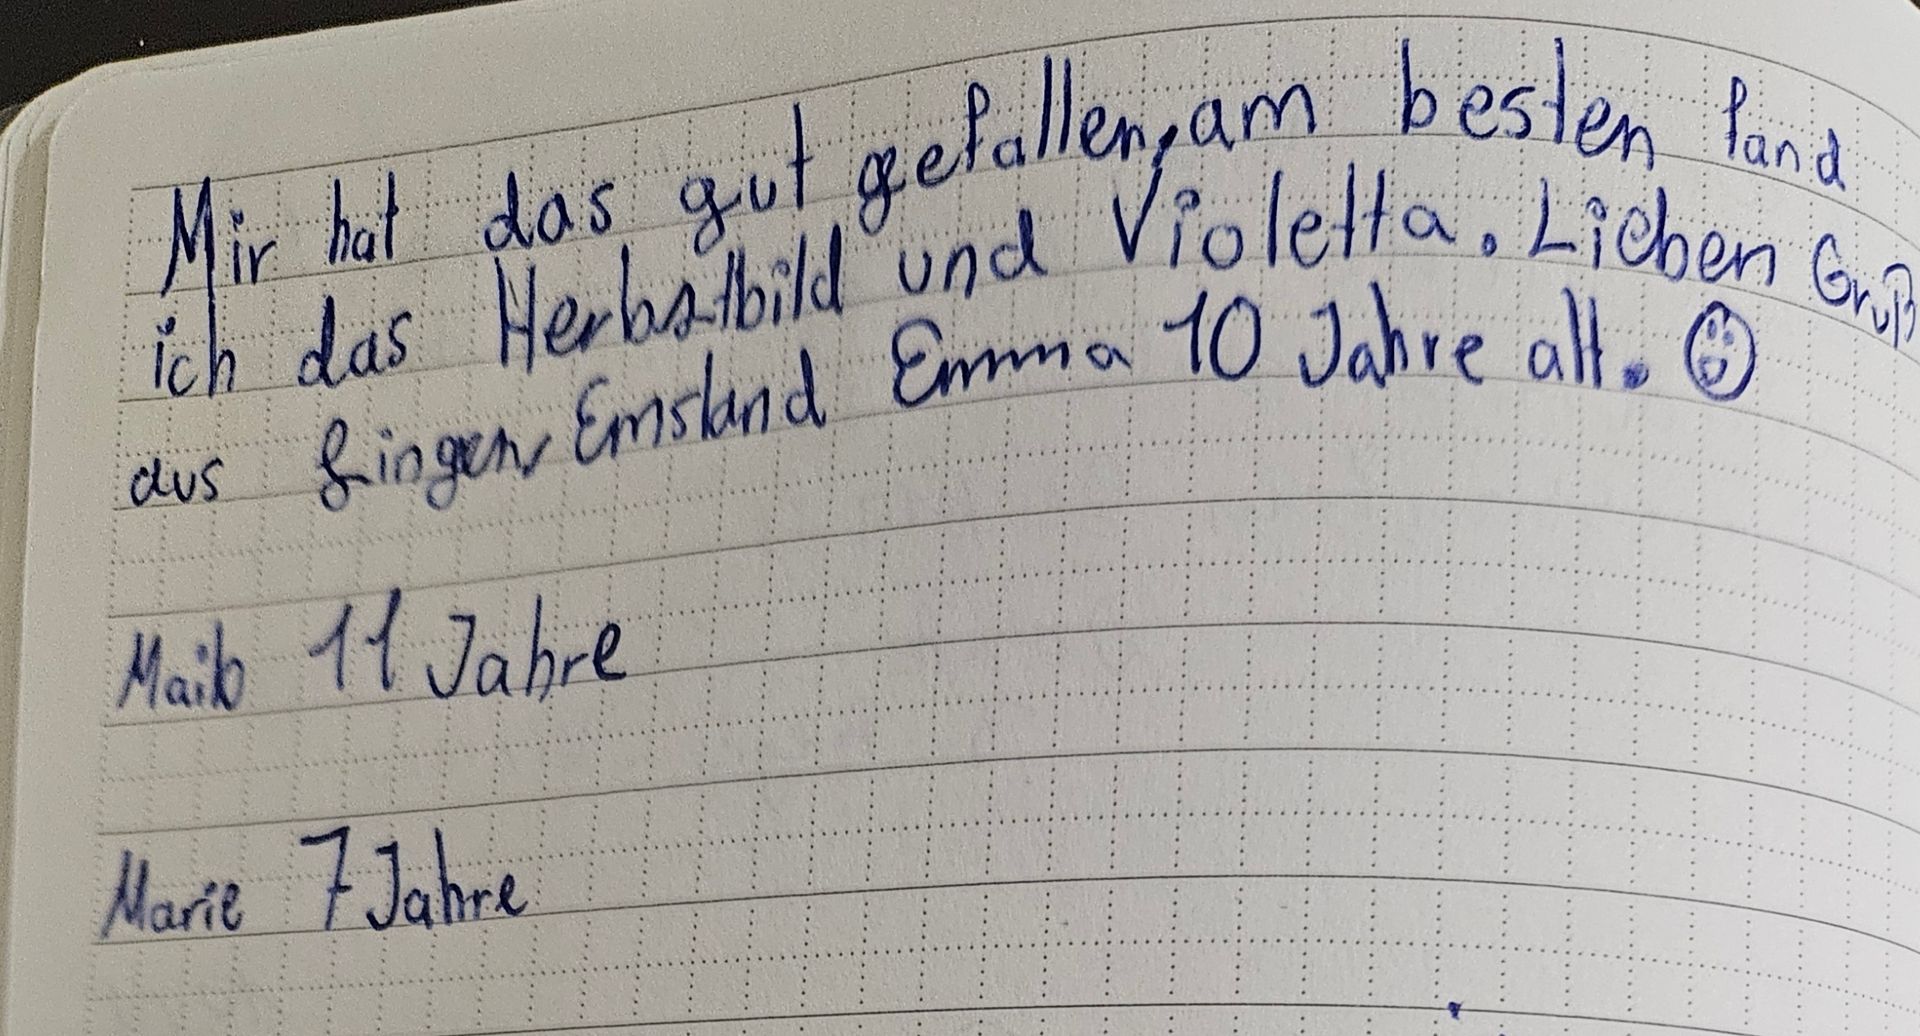 Mir hat das gut gefallen, am besten fand
ich das Herbstbild und Violetta. Lieben Gruß
aus Lingen Emsland Emma 10 Jahre alt. ☺
Maik 11 Jahre
Marie 7 Jahre